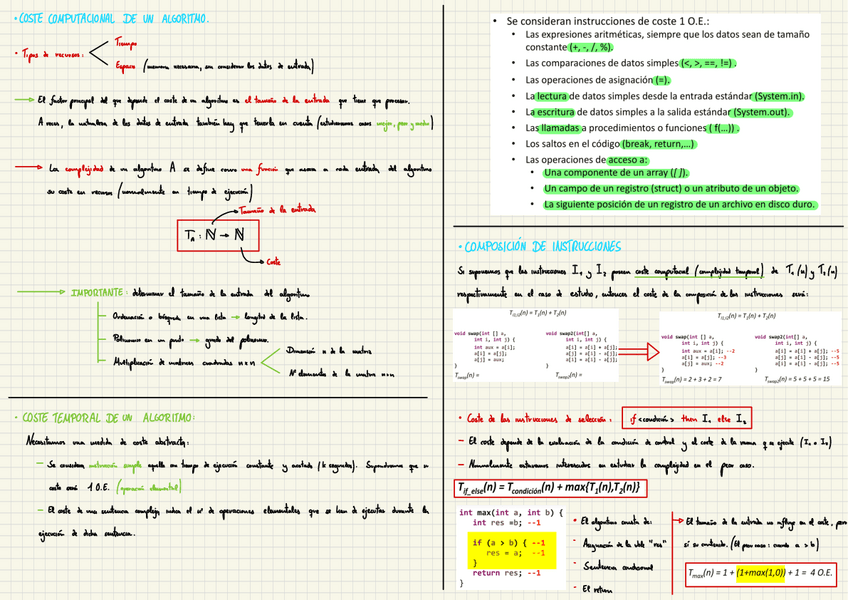 • COSTE COMPUTACIONAL DE UN ALGORITMO.
• Tipos de recursos:
Tiempo
Espacio (memoria necesaria, sin considerar los datos de entrada)
→ El factor principal del que depende el coste de un algoritmo es el tamaño de la entrada que tiene que procesar.
A veces, la naturaleza de los datos de entrada también hay que tenerla en cuenta (estudiaremos casos mejor, peor y medio)
→ La complejidad de un algoritmo A se define como una función que asocia a cada entrada del algoritmo
su coste en recursos (normalmente en tiempo de ejecución)
Tamaño de la entrada
T_A : ℕ → ℕ
Coste
→ IMPORTANTE: determinar el tamaño de la entrada del algoritmo
Ordenación o búsqueda en una lista → longitud de la lista.
Polinomio en un punto → grado del polinomio.
Multiplicación de matrices cuadradas n×n
Dimensión n de la matriz
Nº elementos de la matriz n×n
• COSTE TEMPORAL DE UN ALGORITMO:
Necesitamos una medida de coste abstracta:
– Se considera instrucción simple aquella con tiempo de ejecución constante y acotado (k segundos). Supondremos que su
coste será 1 O.E. (operación elemental)
– El coste de una sentencia compleja será el nº de operaciones elementales que se han de ejecutar durante la
ejecución de dicha sentencia.
• Se consideran instrucciones de coste 1 O.E.:
• Las expresiones aritméticas, siempre que los datos sean de tamaño
constante (+, -, /, %).
• Las comparaciones de datos simples (<, >, ==, !=) .
• Las operaciones de asignación (=).
• La lectura de datos simples desde la entrada estándar (System.in).
• La escritura de datos simples a la salida estándar (System.out).
• Las llamadas a procedimientos o funciones ( f(...)) .
• Los saltos en el código (break, return,...)
• Las operaciones de acceso a:
• Una componente de un array ([ ]).
• Un campo de un registro (struct) o un atributo de un objeto.
• La siguiente posición de un registro de un archivo en disco duro.
• COMPOSICIÓN DE INSTRUCCIONES
Si suponemos que las instrucciones I₁ y I₂ poseen coste computacional (complejidad temporal) de T₁(n) y T₂(n)
respectivamente en el caso de estudio, entonces el coste de la composición de las instrucciones será:
T_{I1;I2}(n) = T₁(n) + T₂(n)
void swap(int [] a,
int i, int j) {
int aux = a[i];
a[i] = a[j];
a[j] = aux;
}
T_swap(n) =
void swap2(int[] a,
int i, int j) {
a[i] = a[i] + a[j];
a[j] = a[i] - a[j];
a[i] = a[i] - a[j];
}
T_swap2(n) =
T_{I1;I2}(n) = T₁(n) + T₂(n)
void swap(int [] a,
int i, int j) {
int aux = a[i]; --2
a[i] = a[j]; --3
a[j] = aux; --2
}
T_swap(n) = 2 + 3 + 2 = 7
void swap2(int[] a,
int i, int j) {
a[i] = a[i] + a[j]; --5
a[j] = a[i] - a[j]; --5
a[i] = a[i] - a[j]; --5
}
T_swap2(n) = 5 + 5 + 5 = 15
• Coste de las instrucciones de selección:
if <condición> then I₁ else I₂
– El coste depende de la evaluación de la condición de control y el coste de la rama que se ejecute (I₁ o I₂)
– Normalmente estaremos interesados en estudiar la complejidad en el peor caso.
T_if_else(n) = T_condición(n) + max{T₁(n),T₂(n)}
int max(int a, int b) {
int res =b; --1
if (a > b) { --1
res = a; --1
}
return res; --1
}
• El algoritmo consta de:
- Asignación de la vble "res"
- Sentencia condicional
- El return
→ El tamaño de la entrada no influye en el coste, pero
sí su contenido. (El peor caso: cuando a > b)
T_max(n) = 1 + (1+max(1,0)) + 1 = 4 O.E.